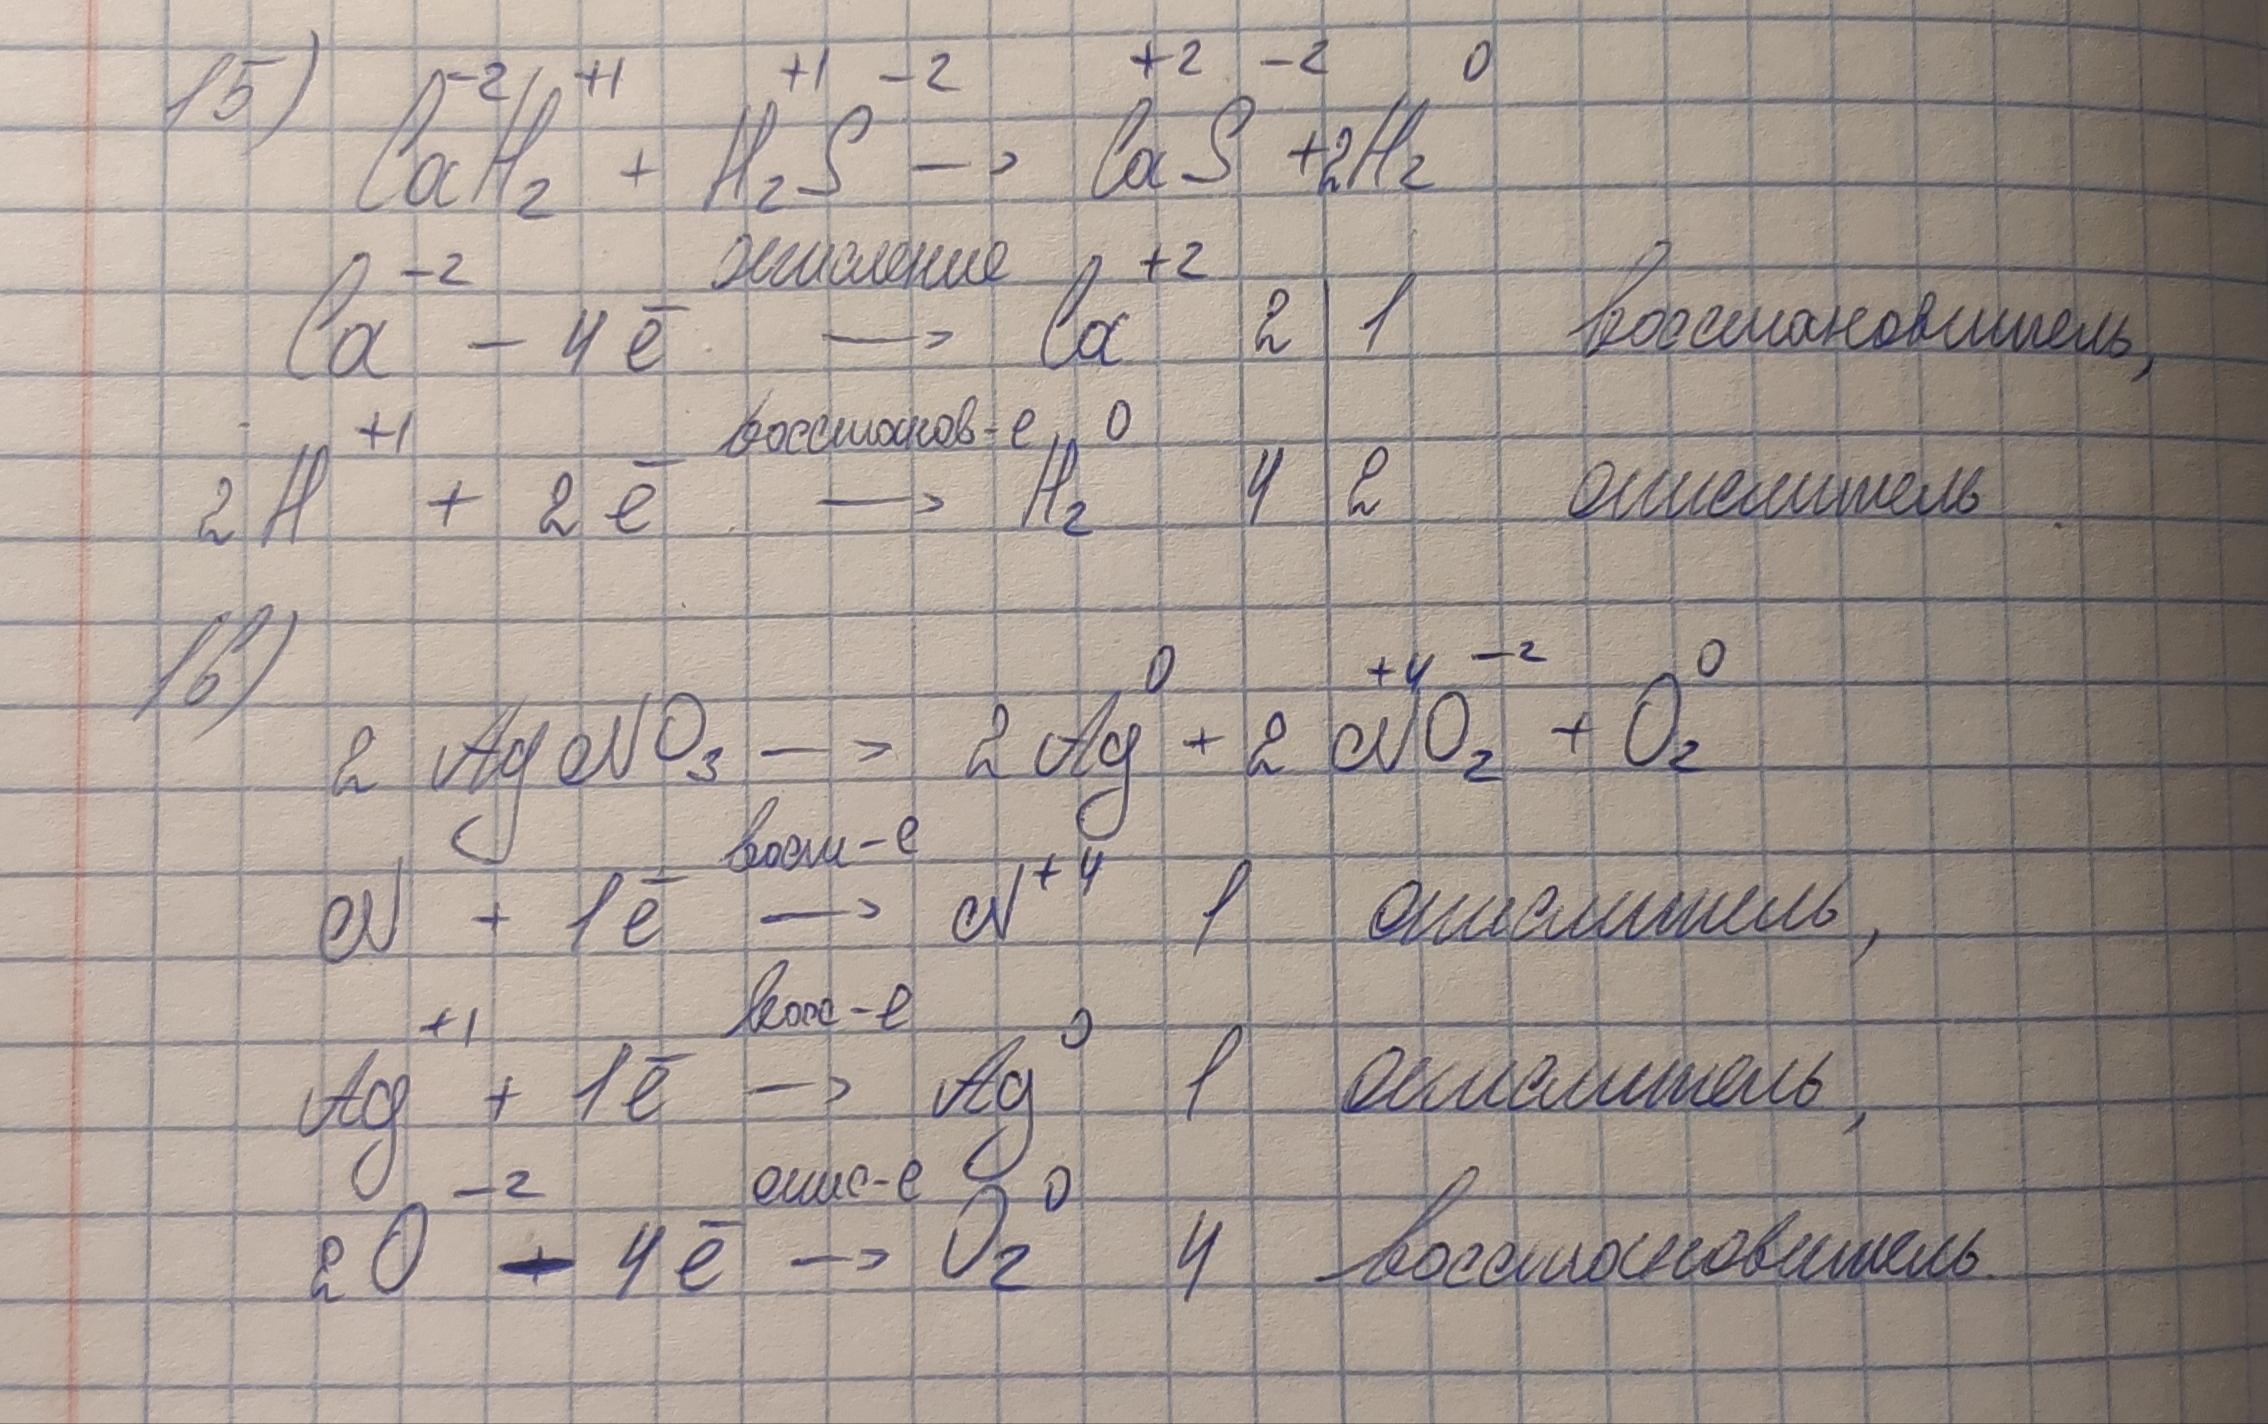 15) Ca⁻²H₂⁺¹ + H₂⁺¹S⁻² → Ca⁺²S⁻² + 2H₂⁰
Ca⁻² - 4ē окисление → Ca⁺² 2 | 1 восстановитель,
2H⁺¹ + 2ē восстанов-е → H₂⁰ 4 | 2 окислитель
16)
2 AgNO₃ → 2Ag⁰ + 2N⁺⁴O₂⁻² + O₂⁰
N + 1ē восст-е → N⁺⁴ 1 окислитель,
Ag⁺¹ + 1ē восс-е → Ag⁰ 1 окислитель,
2O⁻² - 4ē окис-е → O₂⁰ 4 восстановитель.